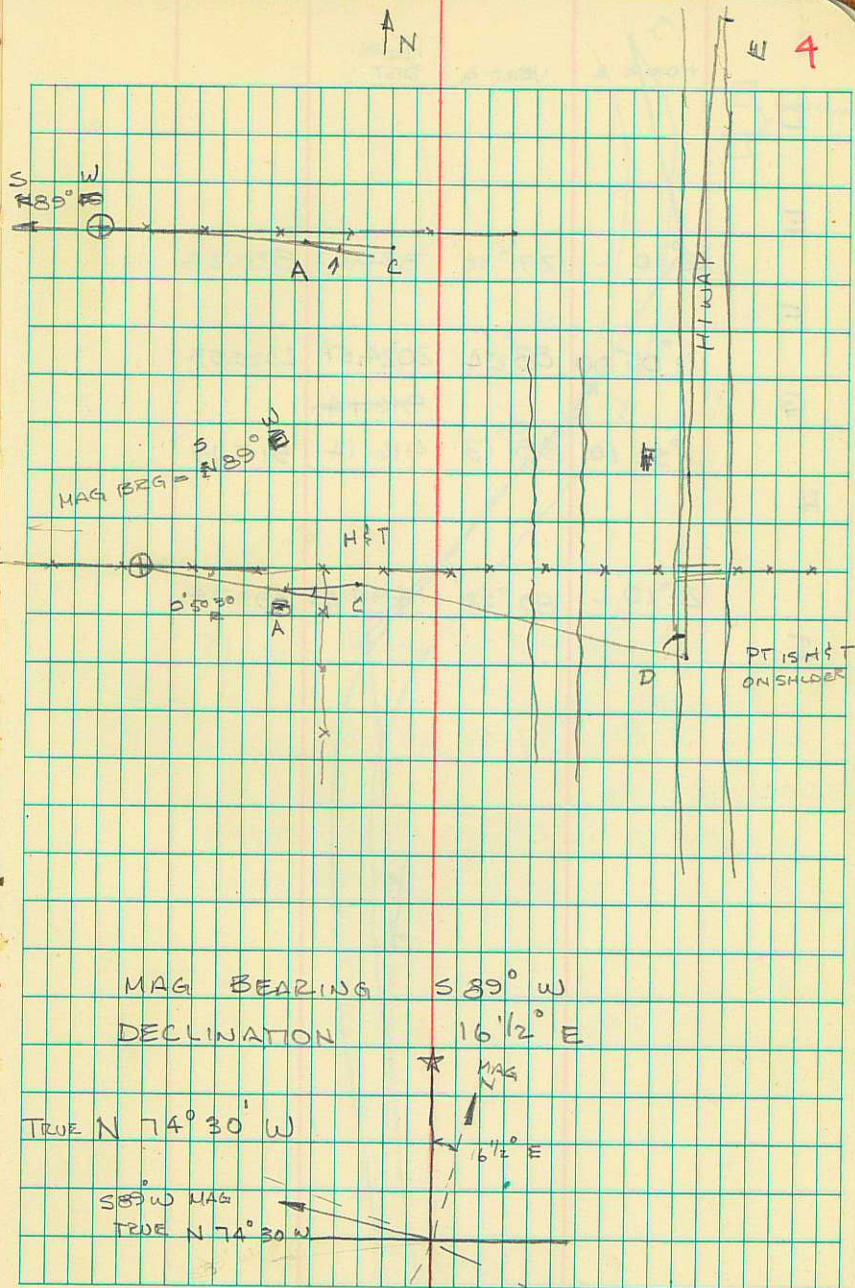 N
E 4
S W
89°
A 1 C
HIWAY
S W
MAG BRG = N 89°
H & T
0°50'30
A
C
D
PT IS H & T
ON SHLDER
MAG BEARING S 89° W
DECLINATION 16 1/2° E
MAG
N
TRUE N 74° 30' W
16 1/2° E
S 89° W MAG
TRUE N 74° 30 W